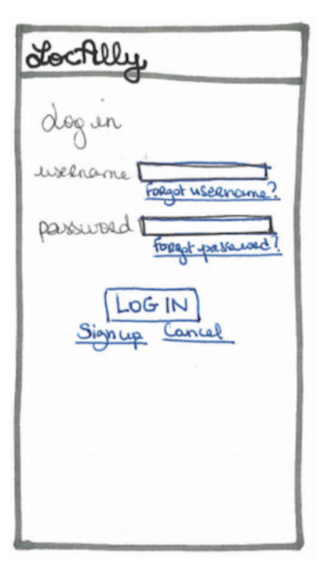 LocAlly
Log in
username
Forgot username?
password
Forgot password?
LOG IN
Sign up Cancel